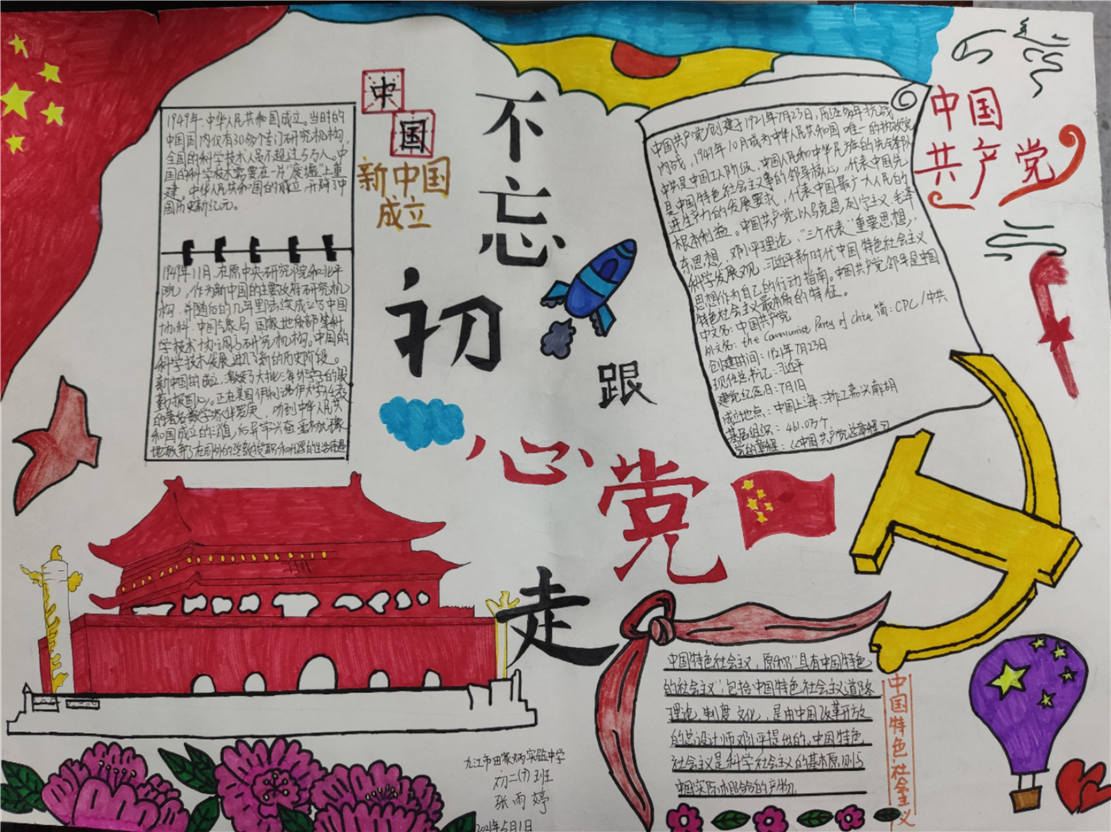 中国
新中国
成立
不忘初心
跟党走
中国
共产党
1949年中华人民共和国成立。当时的
中国国内仅有30多个专门研究机构,
全国的科学技术人员不超过5万人。中
国的科学技术需要在一片废墟上重
建。中华人民共和国的成立,开辟了中
国历史新纪元。
1949年11月,在原中央研究院和北平
院,作为新中国的主要政府研究机
构,并随后的几年里去续成立了中国
协科、中国气象局、国家地质部等科
学技术协调与研究机构。中国的
科学技术发展进入了新的历史阶段。
新中国的
和国成立的消息,
中国共产党创建于1921年7月23日,
内战,1949年10月成为中华人民共和国唯一的执政党
中共是中国工人阶级、中国人民和中华民族的先锋队
是中国特色社会主义事业的领导核心,代表中国先
进生产力的发展要求,代表中国最广大人民的
根本利益。中国共产党以马克思列宁主义、毛泽
东思想、邓小平理论、“三个代表”重要思想、
科学发展观、习近平新时代中国特色社会主义
思想作为自己的行动指南。中国共产党领导是中国
特色社会主义最本质的特征。
中文名:中国共产党
外文名:the Communist Party of China 简:CPC/中共
创建时间:1921年7月23日
现任总书记:习近平
建党纪念日:7月1日
成立地点:中国上海、浙江嘉兴南湖
基层组织:461.0万个
中国特色社会主义,原称“具有中国特色
的社会主义”包括中国特色社会主义道路
理论、制度、文化,是由中国改革开放
的总设计师邓小平提出的。中国特色
社会主义是科学社会主义的基本原则与
中国实际相结合的产物
中国特色社会主义
九江市田家炳实验中学
初二(7)班
张雨婷
2021年5月1日